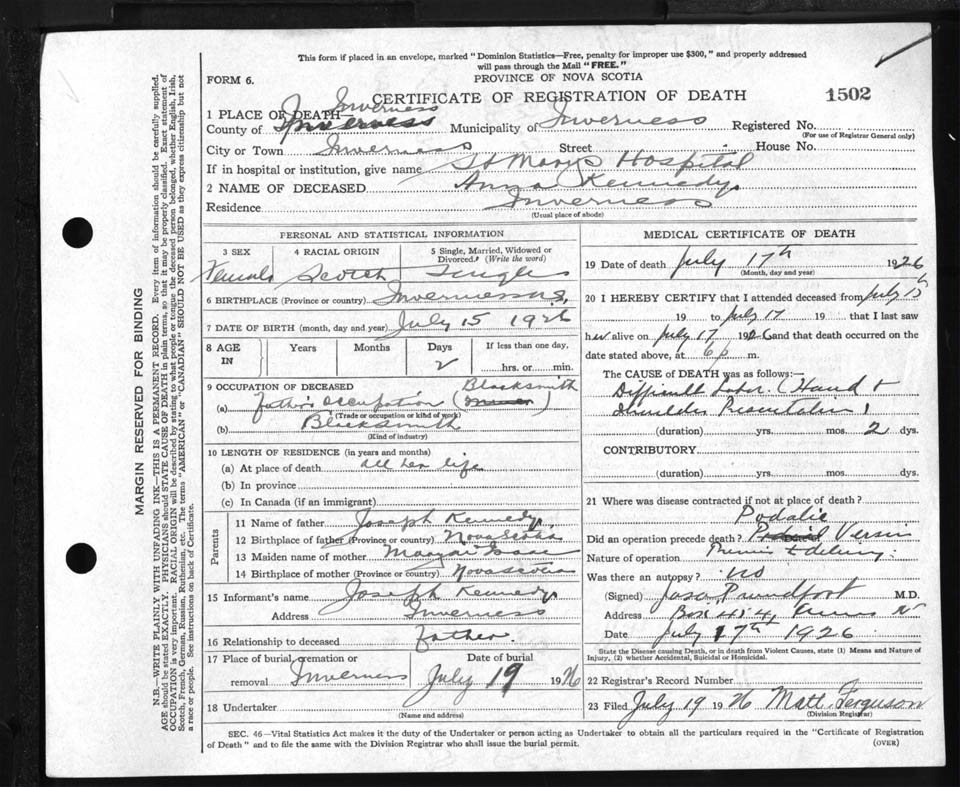 This form if placed in an envelope, marked "Dominion Statistics—Free, penalty for improper use $300," and properly addressed
will pass through the Mail "FREE."
PROVINCE OF NOVA SCOTIA
FORM 6.
CERTIFICATE OF REGISTRATION OF DEATH
1502
1 PLACE OF DEATH— Inverness
County of Inverness Municipality of Inverness Registered No.
(For use of Registrar General only)
City or Town Inverness Street House No.
If in hospital or institution, give name St Marys Hospital
2 NAME OF DECEASED Anna Kennedy
Residence Inverness
(Usual place of abode)
PERSONAL AND STATISTICAL INFORMATION
3 SEX 4 RACIAL ORIGIN 5 Single, Married, Widowed or Divorced? (Write the word)
Female Scotch Single
6 BIRTHPLACE (Province or country) Inverness N.S.
7 DATE OF BIRTH (month, day and year) July 15 1926
8 AGE IN Years Months Days If less than one day,
2 hrs. or min.
9 OCCUPATION OF DECEASED Blacksmith
(a) father's occupation ( )
(Trade or occupation or kind of work)
(b) Blacksmith
(Kind of industry)
10 LENGTH OF RESIDENCE (in years and months)
(a) At place of death all her life
(b) In province
(c) In Canada (if an immigrant)
Parents
11 Name of father Joseph Kennedy
12 Birthplace of father (Province or country) Nova Scotia
13 Maiden name of mother
14 Birthplace of mother (Province or country) Nova Scotia
15 Informant's name Joseph Kennedy
Address Inverness
16 Relationship to deceased father.
17 Place of burial, cremation or Date of burial
removal Inverness July 19 1926
18 Undertaker
(Name and address)
MEDICAL CERTIFICATE OF DEATH
19 Date of death July 17th 1926
(Month, day and year)
20 I HEREBY CERTIFY that I attended deceased from July 15
19 to July 17 19 that I last saw
her alive on July 17 1926 and that death occurred on
date stated above, at 6 p m.
The CAUSE of DEATH was as follows:—
Difficult Labor. (Hand &
Shoulder Presentation)
(duration) yrs. mos. 2 dys.
CONTRIBUTORY
(duration) yrs. mos. dys.
21 Where was disease contracted if not at place of death?
Podalic
Did an operation precede death? Version
Nature of operation & delivery.
Was there an autopsy? no
(Signed) M.D.
Address Box 414,
Date July 17th 1926
State the Disease causing Death, or in death from Violent Causes, state (1) Means and Nature of
Injury, (2) whether Accidental, Suicidal or Homicidal.
22 Registrar's Record Number
23 Filed July 19 1926 Matt. Ferguson
(Division Registrar)
SEC. 46—Vital Statistics Act makes it the duty of the Undertaker or person acting as Undertaker to obtain all the particulars required in the "Certificate of Registration
of Death" and to file the same with the Division Registrar who shall issue the burial permit.
(OVER)
MARGIN RESERVED FOR BINDING
N.B.—WRITE PLAINLY WITH UNFADING INK—THIS IS A PERMANENT RECORD. Every item of information should be carefully supplied.
AGE should be stated EXACTLY. PHYSICIANS should STATE CAUSE OF DEATH in plain terms, so that it may be properly classified. Exact statement of
OCCUPATION is very important. RACIAL ORIGIN will be described by stating to what people or tongue the deceased person belonged, whether English, Irish,
Scotch, French, German, Russian, Ruthenian, etc. The terms "AMERICAN" or "CANADIAN" SHOULD NOT BE USED as they express citizenship but not
a race or people. See instructions on back of Certificate.